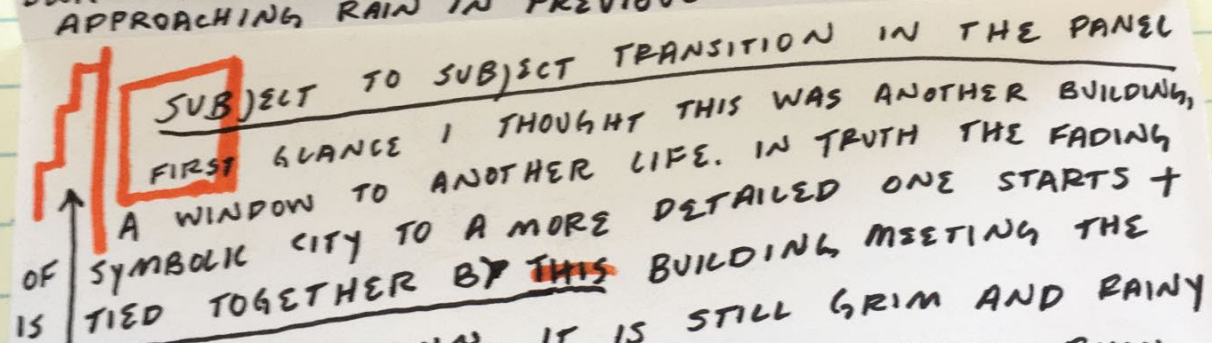 APPROACHING RAIN IN PREVIOU
SUBJECT TO SUBJECT TRANSITION IN THE PANEL
FIRST GLANCE I THOUGHT THIS WAS ANOTHER BUILDING,
A WINDOW TO ANOTHER LIFE. IN TRUTH THE FADING
OF SYMBOLIC CITY TO A MORE DETAILED ONE STARTS +
IS TIED TOGETHER BY THIS BUILDING MEETING THE
IT IS STILL GRIM AND RAINY